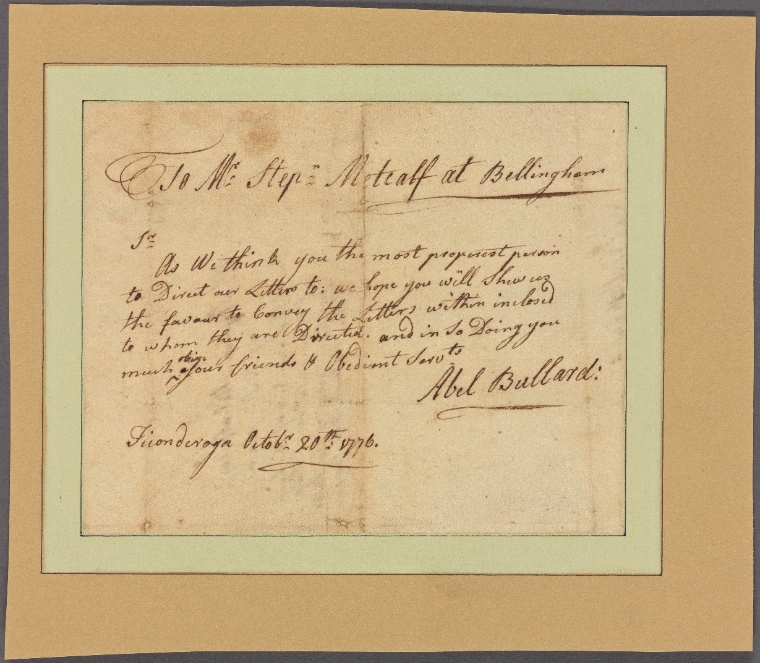 To Mr. Stepn. Metcalf at Bellingham
Sr.
As We think you the most properest person
to Direct our Letters to: we hope you will Shew us
the favour to Convey the Letters within inclosed
to whom they are Directed. and in So Doing you
much oblige your friends & Obedient Servts.
Abel Bullard:
Ticonderoga Octobr. 20th. 1776.